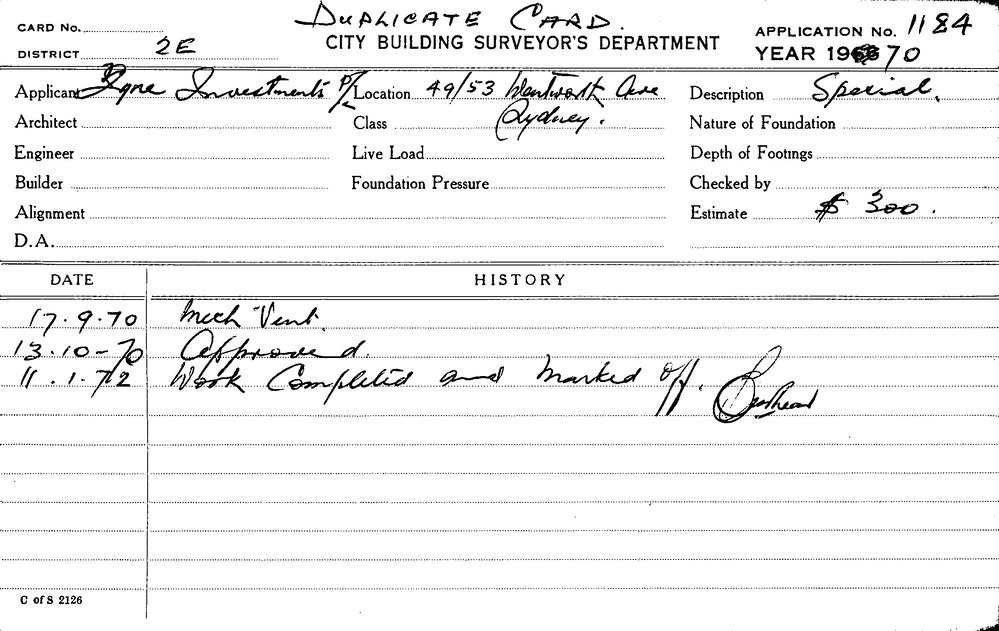 DUPLICATE CARD.
CARD No.
CITY BUILDING SURVEYOR'S DEPARTMENT
APPLICATION No. 1184
DISTRICT 2E
YEAR 1970
Applicant Investments P/L Location 49/53 Wentworth Ave Description Special.
Architect Class Sydney. Nature of Foundation
Engineer Live Load Depth of Footings
Builder Foundation Pressure Checked by
Alignment Estimate $ 300.
D.A.
DATE HISTORY
17.9.70 Mech Vent.
13.10-70 Approved.
11.1.72 Work Completed and marked off.
C of S 2126